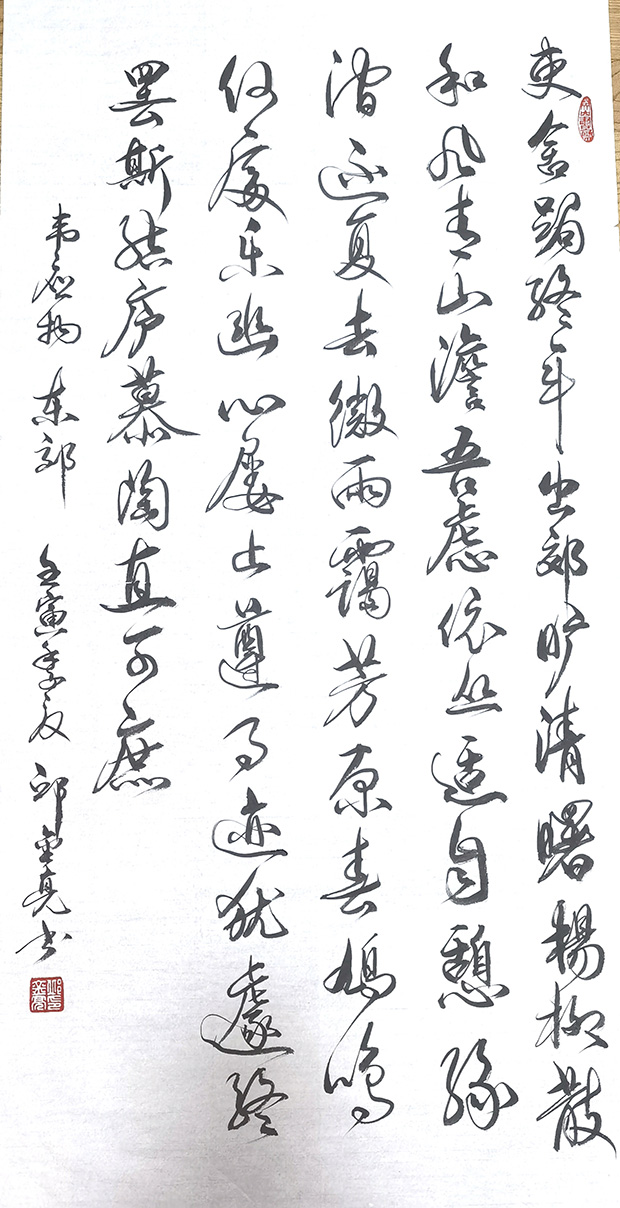 吏舍跼终年出郊旷清曙杨柳散
和风青山澹吾虑依丛适自憩缘
涧还复去微雨霭芳原春鸠鸣
何處乐幽心屡止遵事迹犹遽终
罢斯结庐慕陶直可庶
韦应物 东郊 壬寅季夏 邱金亮书